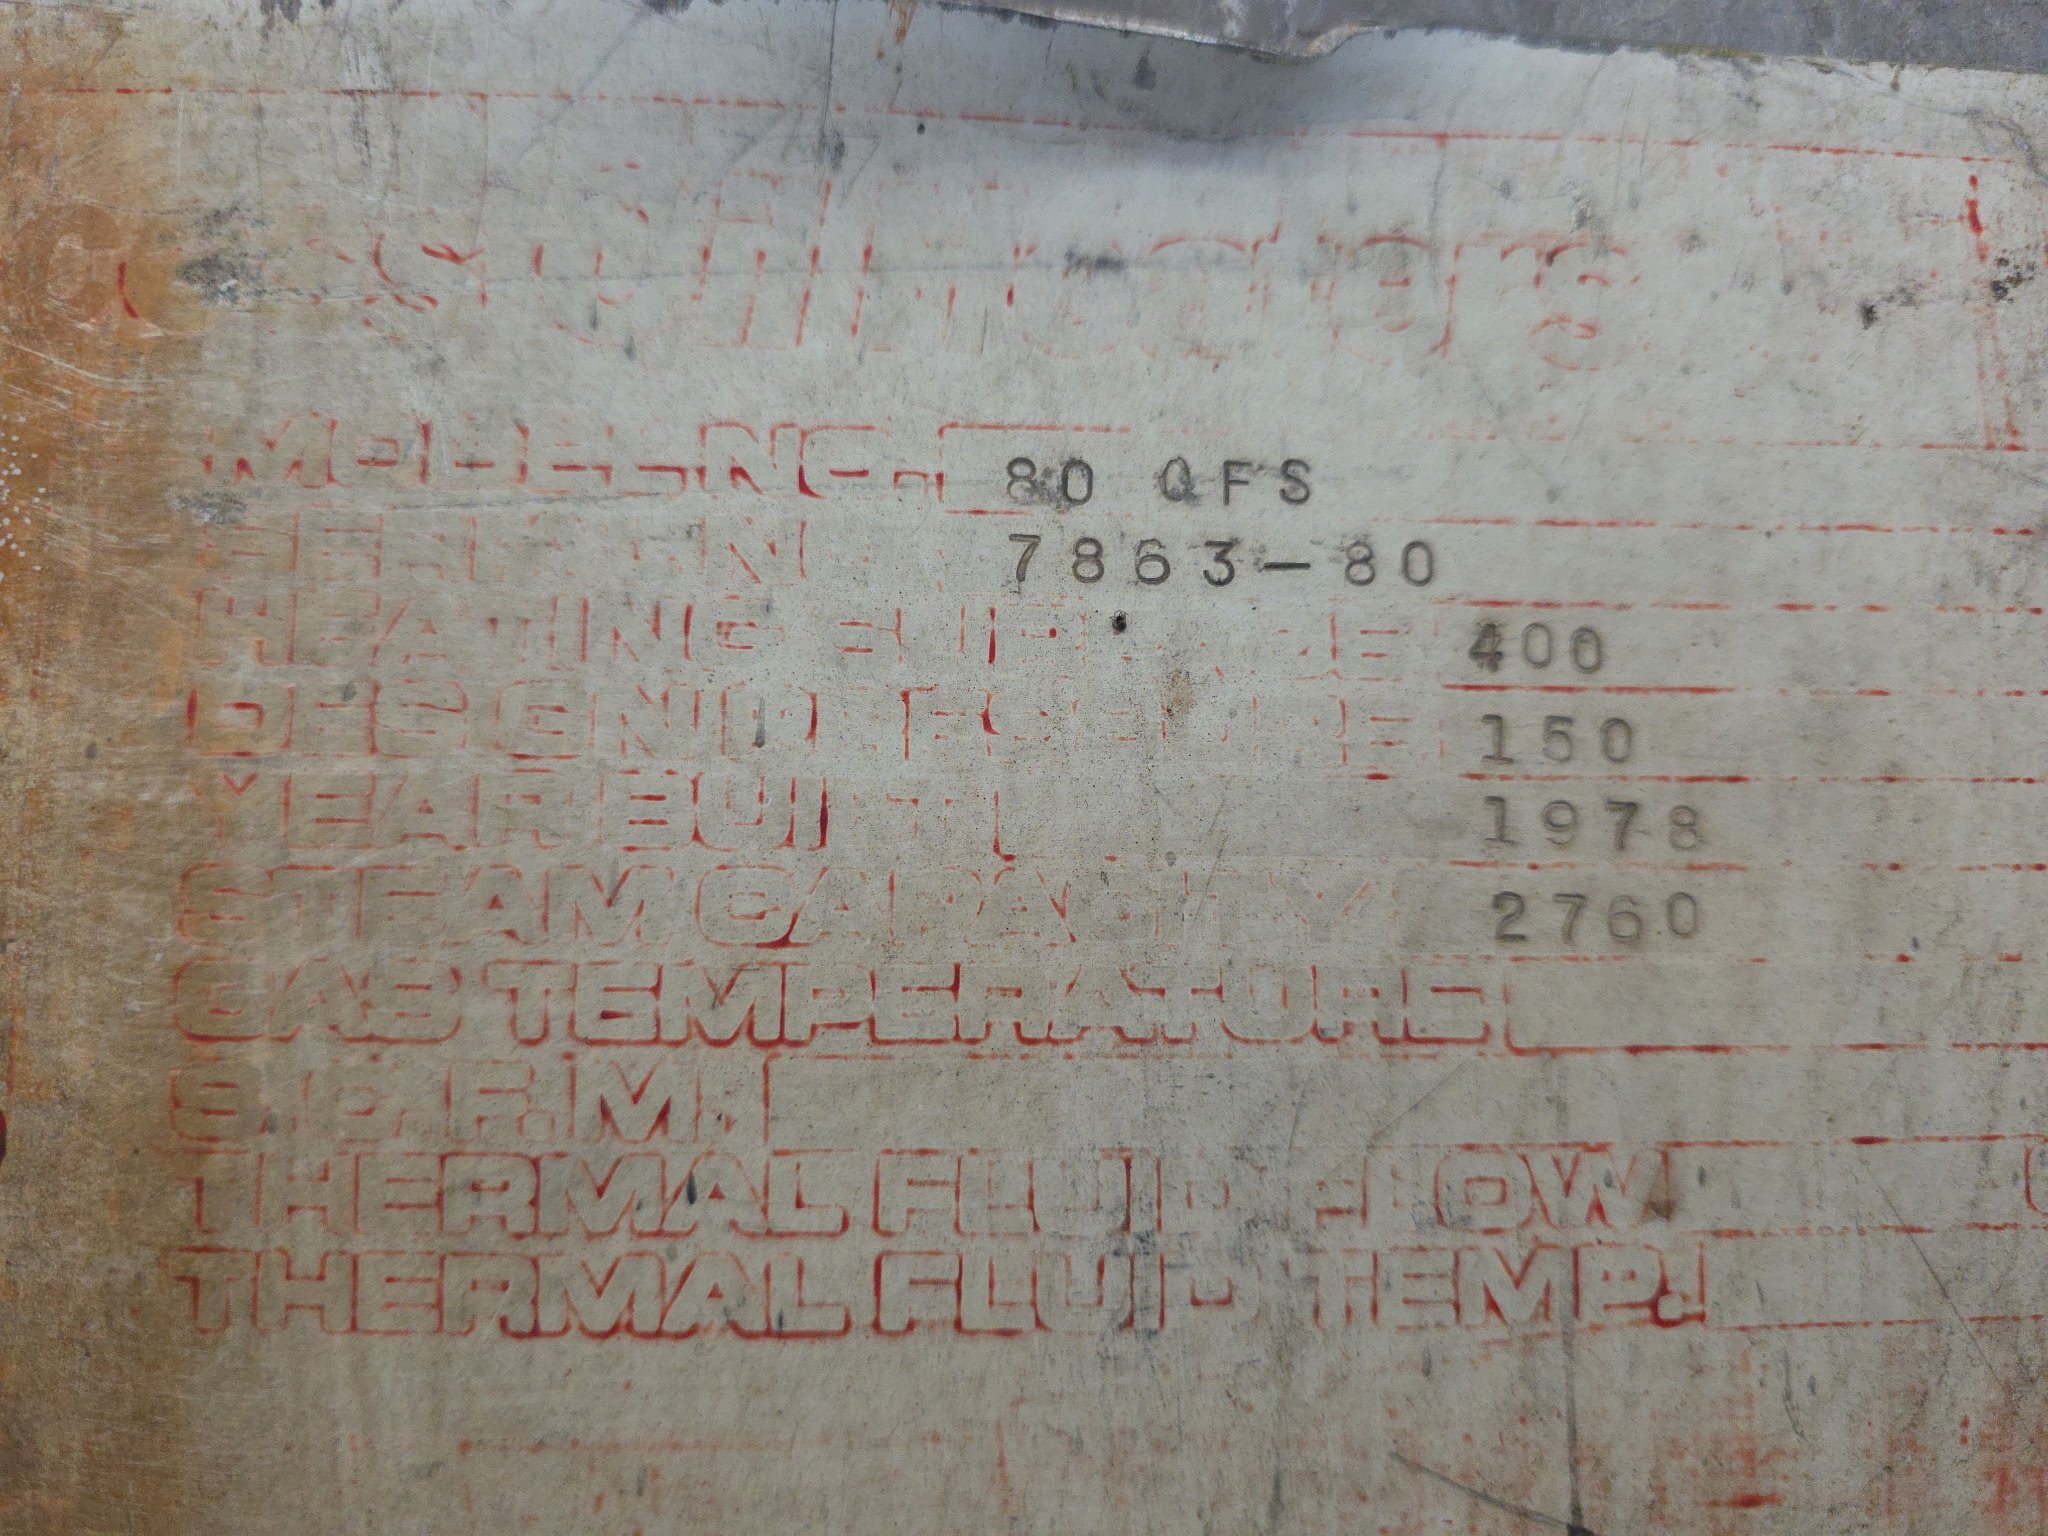 MODEL NO. 80 QFS
SERIAL NO. 7863-80
HEATING SURFACE 400
DESIGN PRESSURE 150
YEAR BUILT 1978
STEAM CAPACITY 2760
GAS TEMPERATURE
S.C.F.M.
THERMAL FLUID FLOW
THERMAL FLUID TEMP.